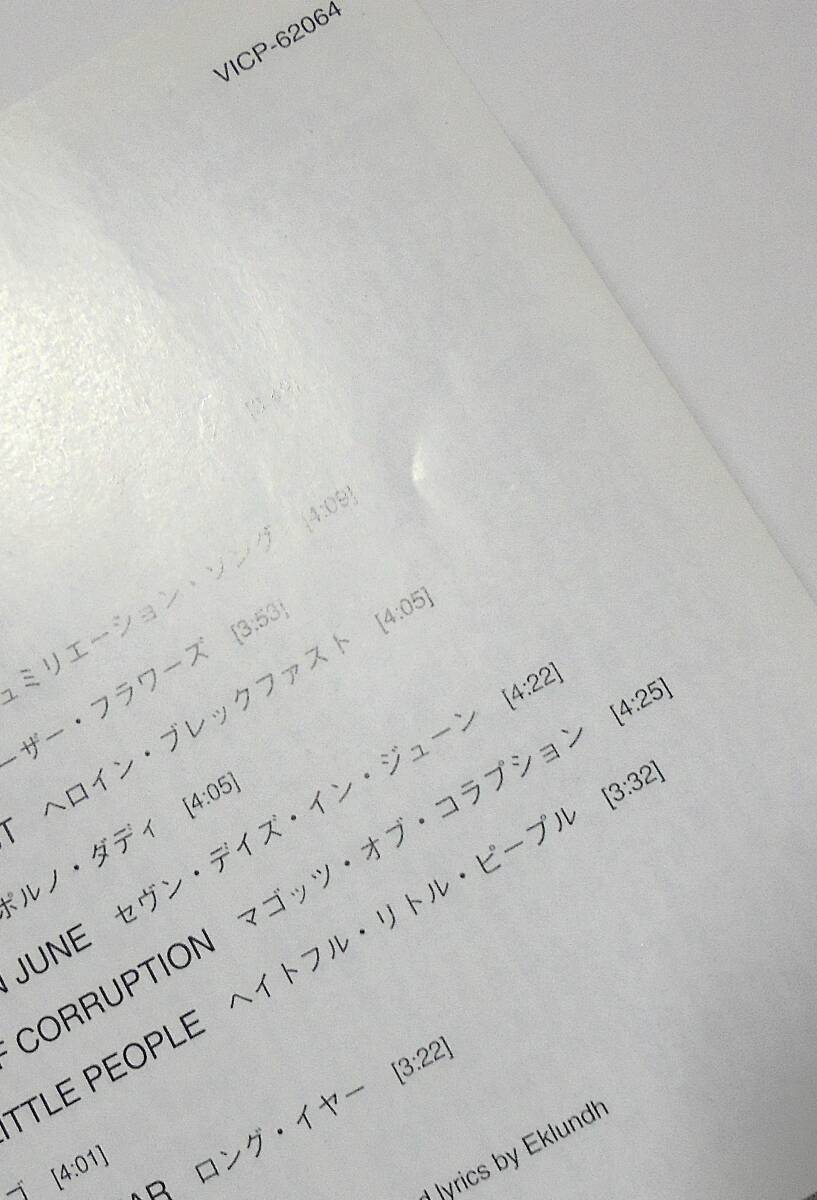 VICP-62064
ュミリエーション・ソング [4:09]
ーザー・フラワーズ [3:53]
ヘロイン・ブレックファスト [4:05]
ポルノ・ダディ [4:05]
JUNE セヴン・デイズ・イン・ジューン [4:22]
CORRUPTION マゴッツ・オブ・コラプション [4:25]
LITTLE PEOPLE ヘイトフル・リトル・ピープル [3:32]
ゴ [4:01]
AR ロング・イヤー [3:22]
d lyrics by Eklundh